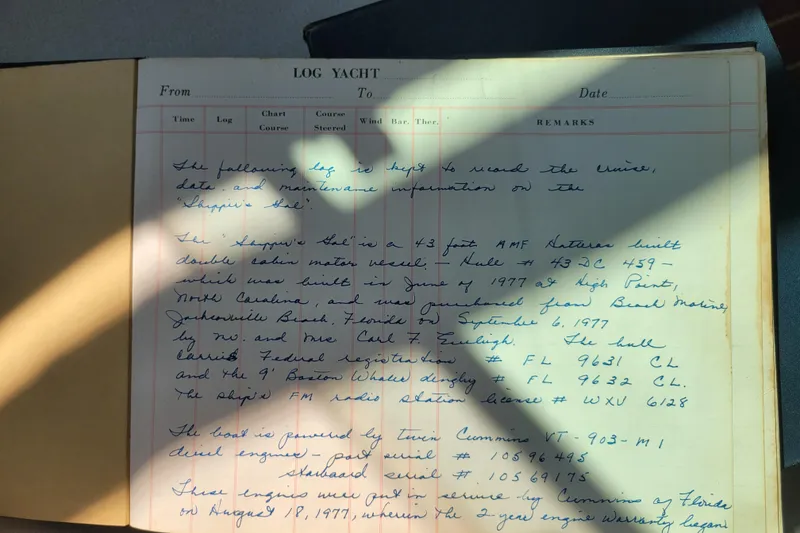 LOG YACHT
From To Date
Time Log Chart Course Course Steered Wind Bar. Ther. REMARKS
The following log is kept to record the cruise,
data and maintenance information on the
"Skipper's Gal".
The "Skipper's Gal" is a 43 foot AMF Hatteras built
double cabin motor vessel. — Hull # 43 DC 459 —
which was built in June of 1977 at High Point,
North Carolina, and was purchased from Beach Marine,
Jacksonville Beach, Florida on September 6, 1977
by Mr. and Mrs Carl F. The hull
carries Federal registration # FL 9631 CL
and the 9' Boston Whaler dinghy # FL 9632 CL.
The ship's FM radio station license # WXV 6128
The boat is powered by twin Cummins VT-903-M1
diesel engines - port serial # 10596495
starboard serial # 10569175
These engines were put in service by Cummins of Florida
on August 18, 1977, wherein the 2 year engine warranty began